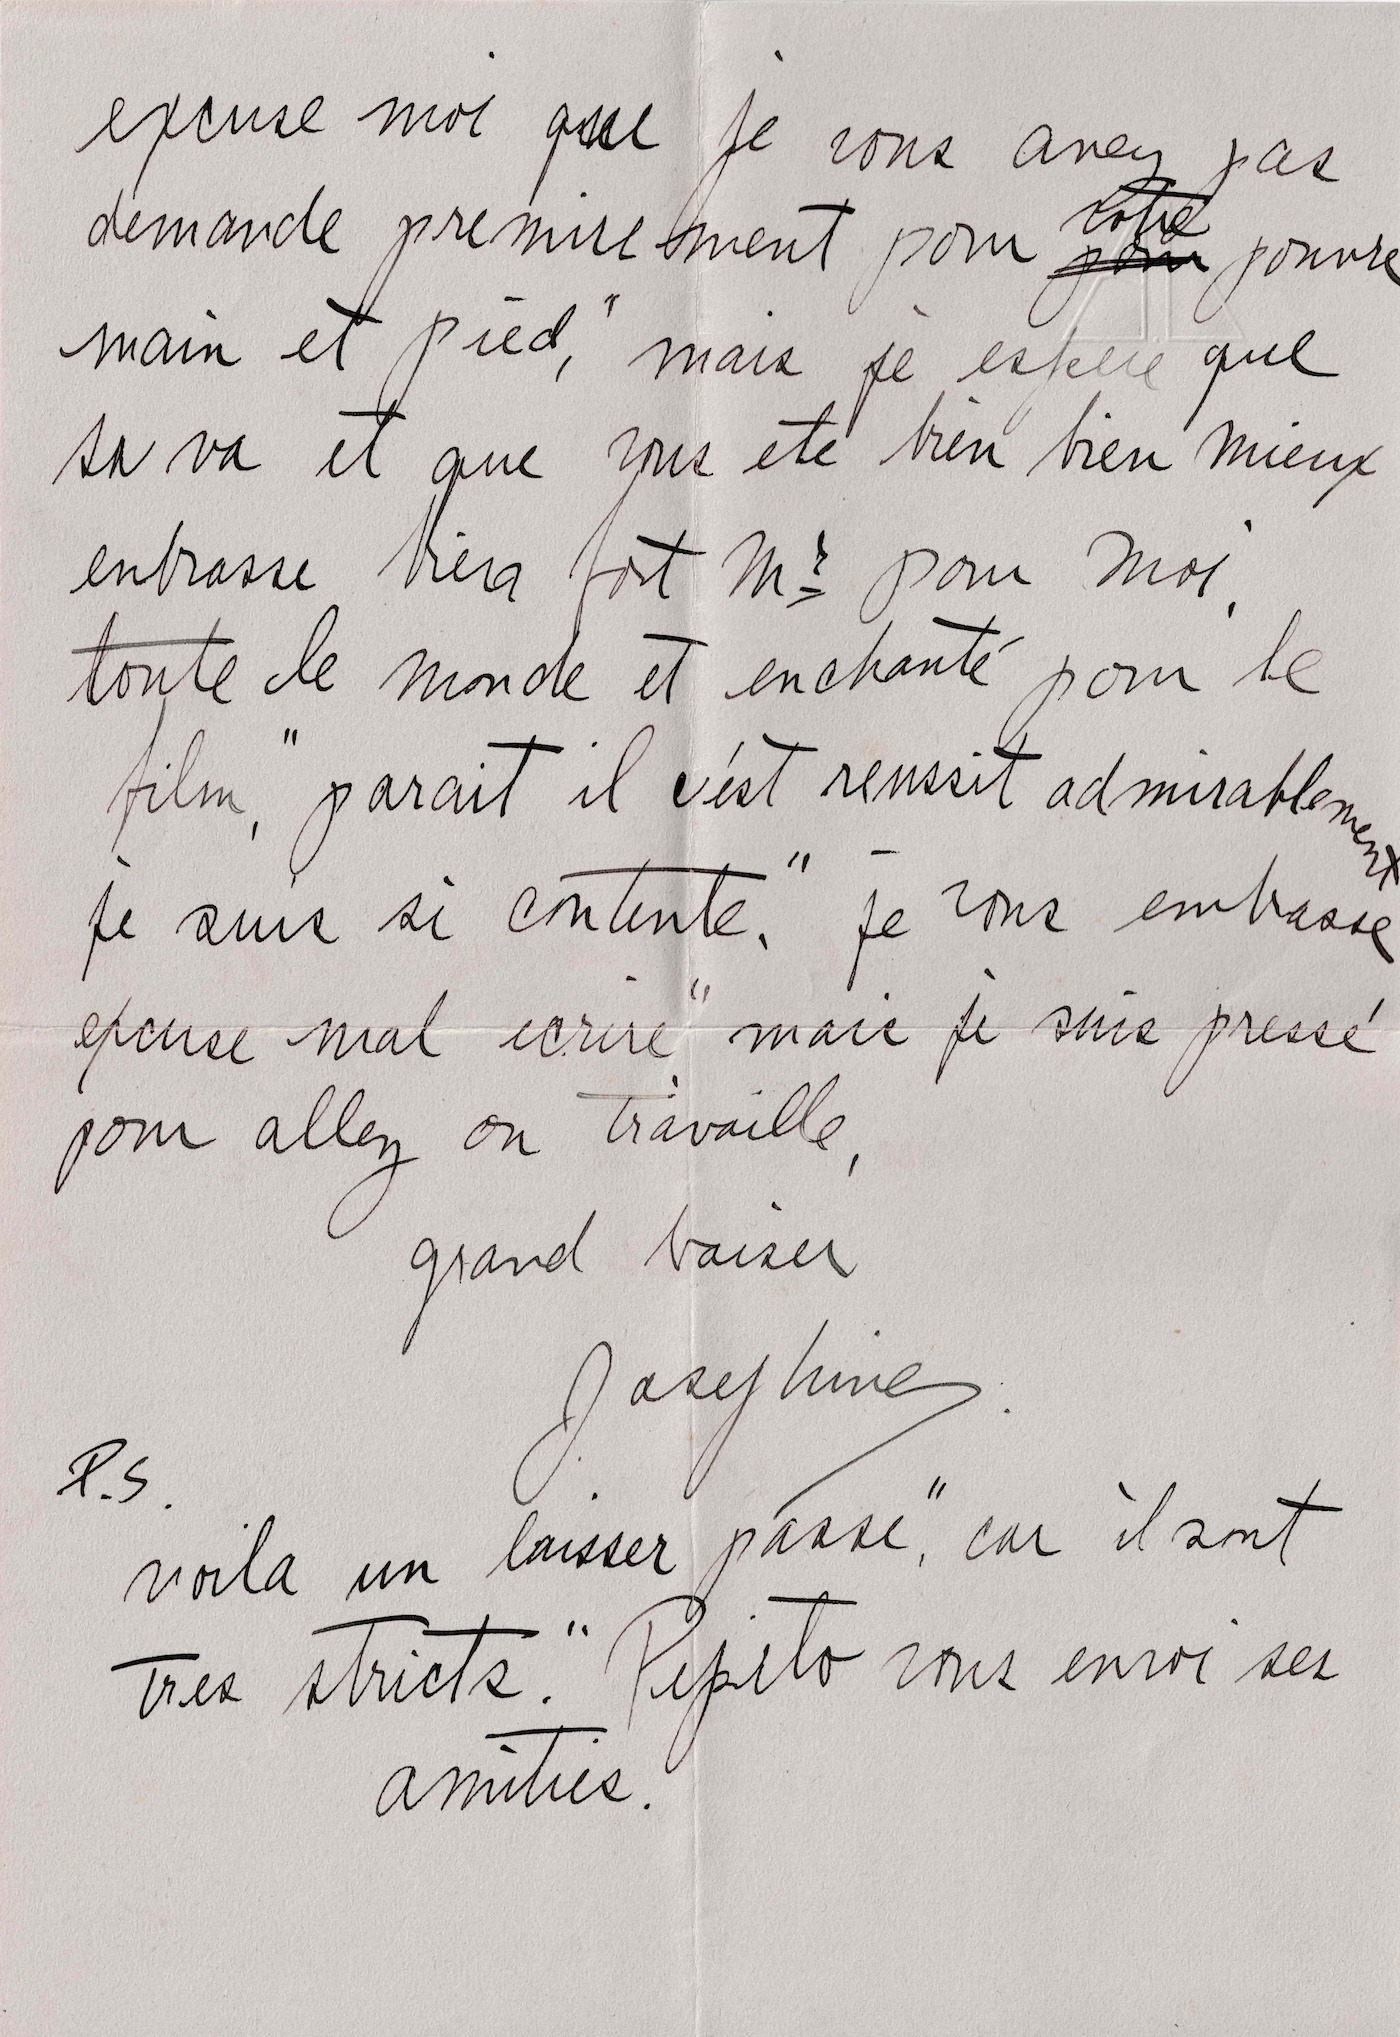 excuse moi que je vous avez pas
demande premirement pour votre pouvre
main et pied," mais je espere que
sa va et que vous ete bien bien mieux
enbrasse bien fort Mr pour moi,
toute le monde et enchanté pour le
film," parait il c'est reussit admirablement
je suis si contente." je vous embrasse
excuse mal ecrire" mais je suis pressé
pour allez on travaille,
grand baiser
Josephine.
P.S.
voila un laisser passe," car il sont
tres stricts." Pepito vous envoi ses
amities.